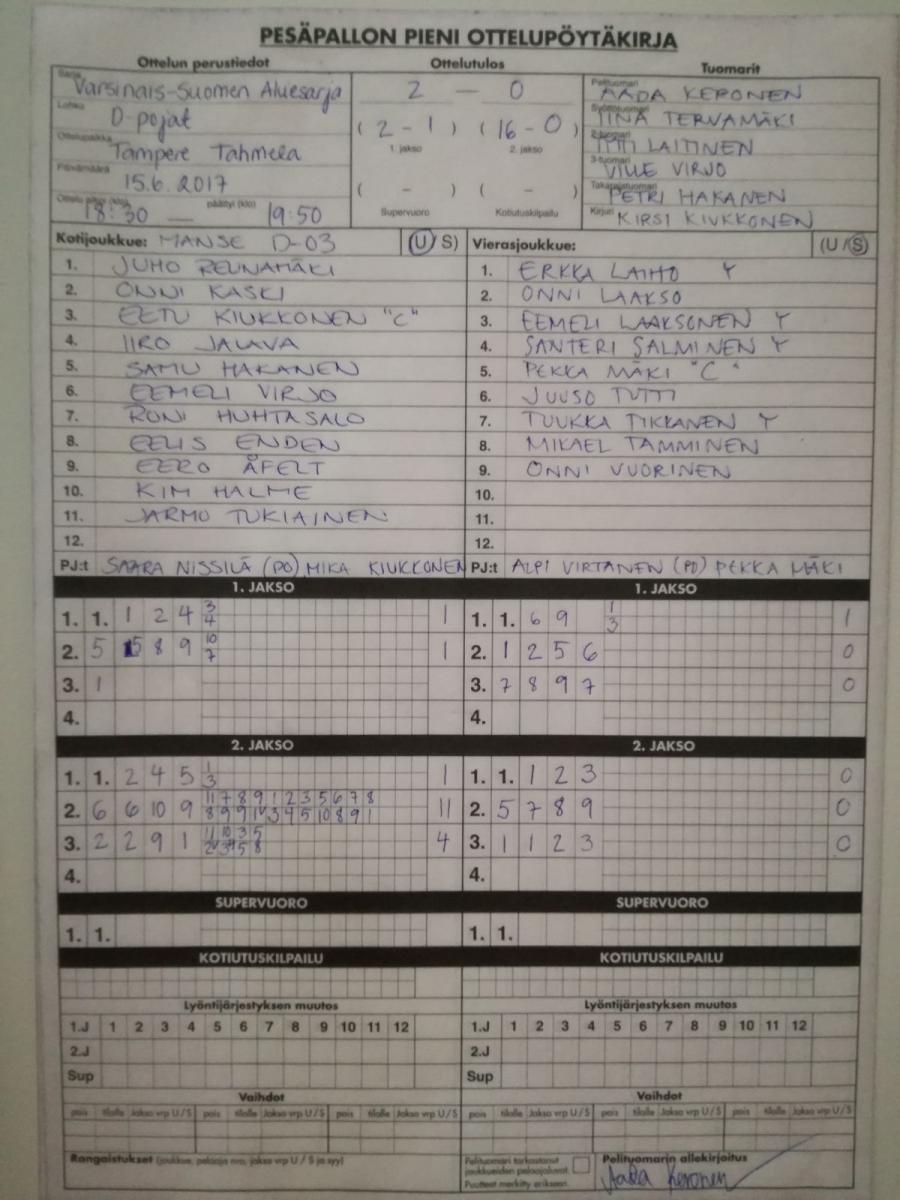 PESÄPALLON PIENI OTTELUPÖYTÄKIRJA
Ottelun perustiedot Ottelutulos Tuomarit
Sarja Varsinais-Suomen Aluesarja 2 — 0 Pelituomari AADA KERONEN
Lohko D-pojat (2-1) (16-0) Syöttötuomari IINA TERVAMÄKI
1. jakso 2. jakso 2-tuomari ITTI LAITINEN
Ottelupaikka Tampere Tahmela 3-tuomari VILLE VIRJO
Päivämäärä 15.6.2017 ( - ) ( - ) Takarajatuomari PETRI HAKANEN
Ottelu alkoi (klo) 18:30 — päättyi (klo) 19:50 Supervuoro Kotiutuskilpailu Kirjuri KIRSI KIUKKONEN
Kotijoukkue: MANSE D-03 (U/S) Vierasjoukkue: (U/S)
1. JUHO REUNAMÄKI 1. ERKKA LAIHO Y
2. ONNI KASKI 2. ONNI LAAKSO
3. EETU KIUKKONEN "C" 3. EEMELI LAAKSONEN Y
4. IIRO JALAVA 4. SANTERI SALMINEN Y
5. SAMU HAKANEN 5. PEKKA MÄKI "C"
6. EEMELI VIRJO 6. JUUSO TUTTI
7. RONI HUHTASALO 7. TUUKKA TIKKANEN Y
8. EELIS ENDEN 8. MIKAEL TAMMINEN
9. EERO ÅFELT 9. ONNI VUORINEN
10. KIM HALME 10.
11. JARMO TUKIAINEN 11.
12. 12.
PJ:t SAARA NISSILÄ (PO) MIKA KIUKKONEN PJ:t ALPI VIRTANEN (PO) PEKKA MÄKI
1. JAKSO 1. JAKSO
1. 1. 1 2 4 3/4 1 1. 1. 6 9 1/3 1
2. 5 8 9 10/7 1 2. 1 2 5 6 0
3. 1 3. 7 8 9 7 0
4. 4.
2. JAKSO 2. JAKSO
1. 1. 2 4 5 1/3 1 1. 1. 1 2 3 0
2. 6 6 10 9 11 7 8 9 1 2 3 5 6 7 8 11 2. 5 7 8 9 0
3. 2 2 9 1 11 10 3 5 4 3. 1 1 2 3 0
4. 4.
SUPERVUORO SUPERVUORO
1. 1. 1. 1.
KOTIUTUSKILPAILU KOTIUTUSKILPAILU
Lyöntijärjestyksen muutos Lyöntijärjestyksen muutos
1.J 1 2 3 4 5 6 7 8 9 10 11 12 1.J 1 2 3 4 5 6 7 8 9 10 11 12
2.J 2.J
Sup Sup
Vaihdot Vaihdot
pois tilalle Jakso vrp U/S pois tilalle Jakso vrp U/S pois tilalle Jakso vrp U/S pois tilalle Jakso vrp U/S pois tilalle Jakso vrp U/S pois tilalle Jakso vrp U/S
Rangaistukset (joukkue, pelaaja nro, jakso vrp U/S ja syy) Pelituomari tarkastanut Pelituomarin allekirjoitus
joukkueiden pelaajaluvat.
Puutteet merkitty erikseen. Aada Keronen